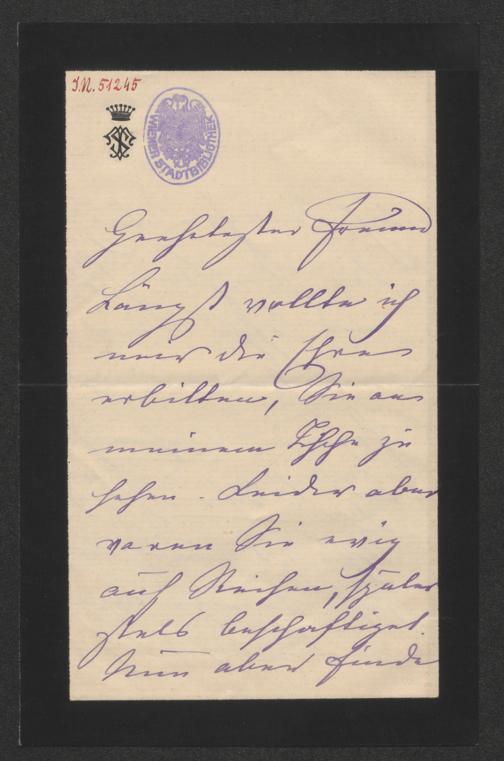 I.N. 51245
WIENER STADTBIBLIOTHEK
Geehrtester Freund
Längst wollte ich
mir die Ehre
erbitten, Sie an
meinem Tische zu
sehen. Leider aber
waren Sie ewig
auf Reisen, später
stets beschäftiget.
Nun aber finde